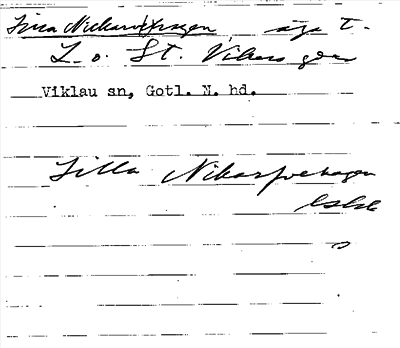 Lilla Nickarfvehagen, äga t.
L. o. St. Vikers gdr
Viklau sn, Gotl. N. hd.
Lilla Nikarfvehagen